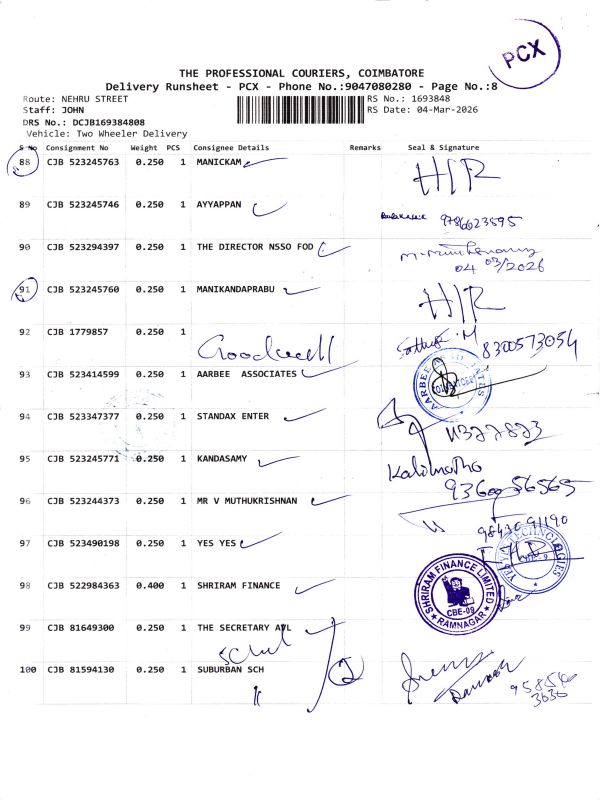 PCX
THE PROFESSIONAL COURIERS, COIMBATORE
Delivery Runsheet - PCX - Phone No.:9047080280 - Page No.:8
Route: NEHRU STREET
RS No.: 1693848
Staff: JOHN
RS Date: 04-Mar-2026
DRS No.: DCJB169384808
Vehicle: Two Wheeler Delivery
S No Consignment No Weight PCS Consignee Details Remarks Seal & Signature
88 CJB 523245763 0.250 1 MANICKAM H/R
89 CJB 523245746 0.250 1 AYYAPPAN 9786623595
90 CJB 523294397 0.250 1 THE DIRECTOR NSSO FOD
04 03/2026
91 CJB 523245760 0.250 1 MANIKANDAPRABU H/R
92 CJB 1779857 0.250 1
Goodwell 8300573054
93 CJB 523414599 0.250 1 AARBEE ASSOCIATES
AARBEE ASSOCIATES
94 CJB 523347377 0.250 1 STANDAX ENTER
95 CJB 523245771 0.250 1 KANDASAMY
96 CJB 523244373 0.250 1 MR V MUTHUKRISHNAN
97 CJB 523490198 0.250 1 YES YES
98 CJB 522984363 0.400 1 SHRIRAM FINANCE
SHRIRAM FINANCE LIMITED
CBE-09
RAMNAGAR
99 CJB 81649300 0.250 1 THE SECRETARY AVL
100 CJB 81594130 0.250 1 SUBURBAN SCH